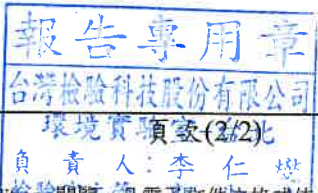 報告專用章
台灣檢驗科技股份有限公司
環境實驗室-台北
頁次(2/2)
負責人:李仁燮